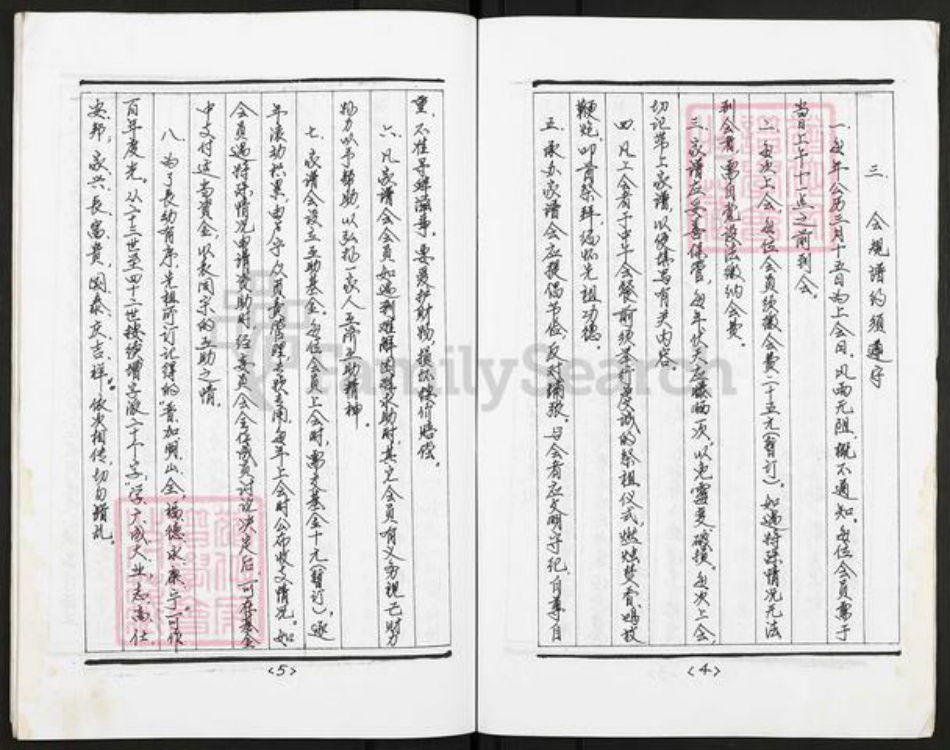 三、会规谱约须遵守
一、每年公历三月十五日为上会日，风雨无阻，概不通知。每位会员需于
当日上午十一点之前到会。
二、每次上会，每位会员须缴会费二十五元（暂订），如遇特殊情况无法
到会者，需自觉设法缴纳会费。
三、家谱应妥善保管，每年伏天应暴晒一次，以免霉变破损。每次上会，
切记带上家谱，以便填写有关内容。
四、凡上会者于中午会餐前须举行虔诚的祭祖仪式，燃烛焚香，鸣放
鞭炮，叩首祭拜，缅怀先祖功德。
五、承办家谱会应提倡节俭，反对铺张。与会者应文明守纪，自尊自
重，不准寻衅滋事。要爱护财物，损坏按价赔偿。
六、凡家谱会会员如遇到难解困难求助时，其它会员有义务视己财力
物力以予帮助，以弘扬一家人互济互助精神。
七、家谱会设立互助基金。每位会员上会时，需交基金十元（暂订），逐
年滚动积累，由专人负责管理，专款专用，每年上会时公布收支情况。如
会员遇特殊情况申请资助时，经委员会全体成员讨论决定后，可在基金
中支付适当资金，以表同宗的互助之情。
八、为了长幼有序，先祖所订记得的“普加明山全，福德永康宁”可作
百年度光。从二十三世至四十二世接续增字派二十个字：“学广成大业，志高仕
安邦，家兴长富贵，国泰庆吉祥”。依次相传，切勿错乱。
<4>
<5>
FamilySearch